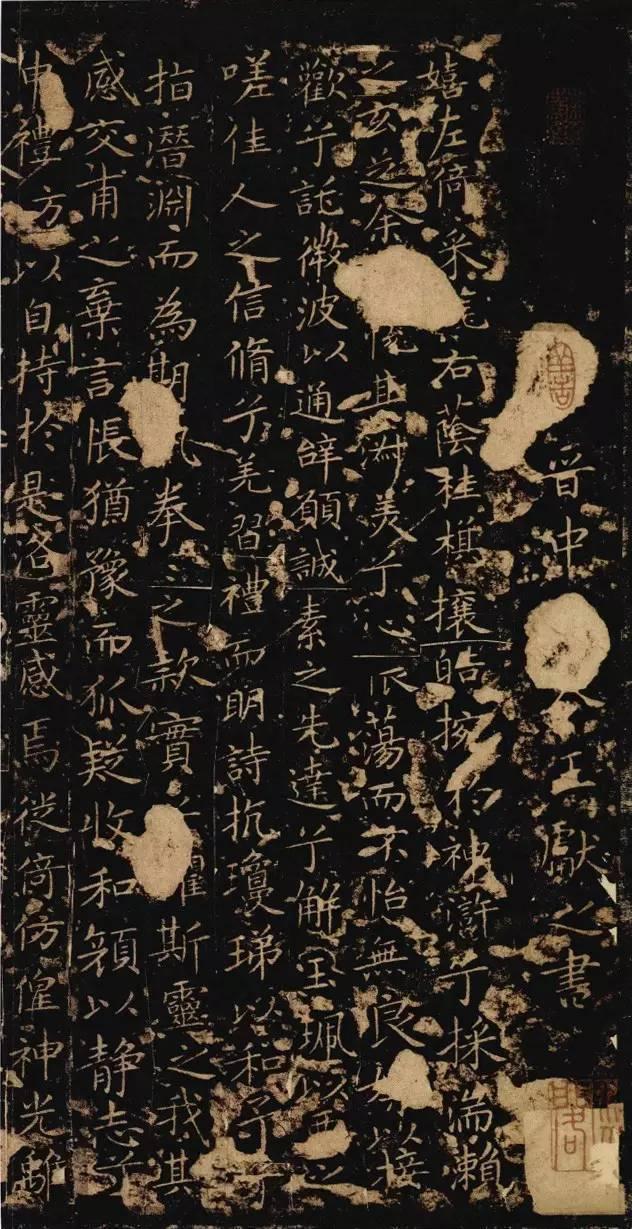 晋中令王獻之書
嬉左倚采旄右蔭桂旗攘皓捥於神滸兮採湍瀨
之玄芝余悅其淑美兮心振蕩而不怡無良媒以接
歡兮託微波以通辭願誠素之先達兮解玉珮以要之
嗟佳人之信脩兮羌習禮而明詩抗瓊珶以和予兮
指潛淵而為期執拳〻之款實兮懼斯靈之我欺
感交甫之棄言悵猶豫而狐疑收和顏以静志兮
申禮方以自持於是洛靈感焉徙倚仿偟神光離